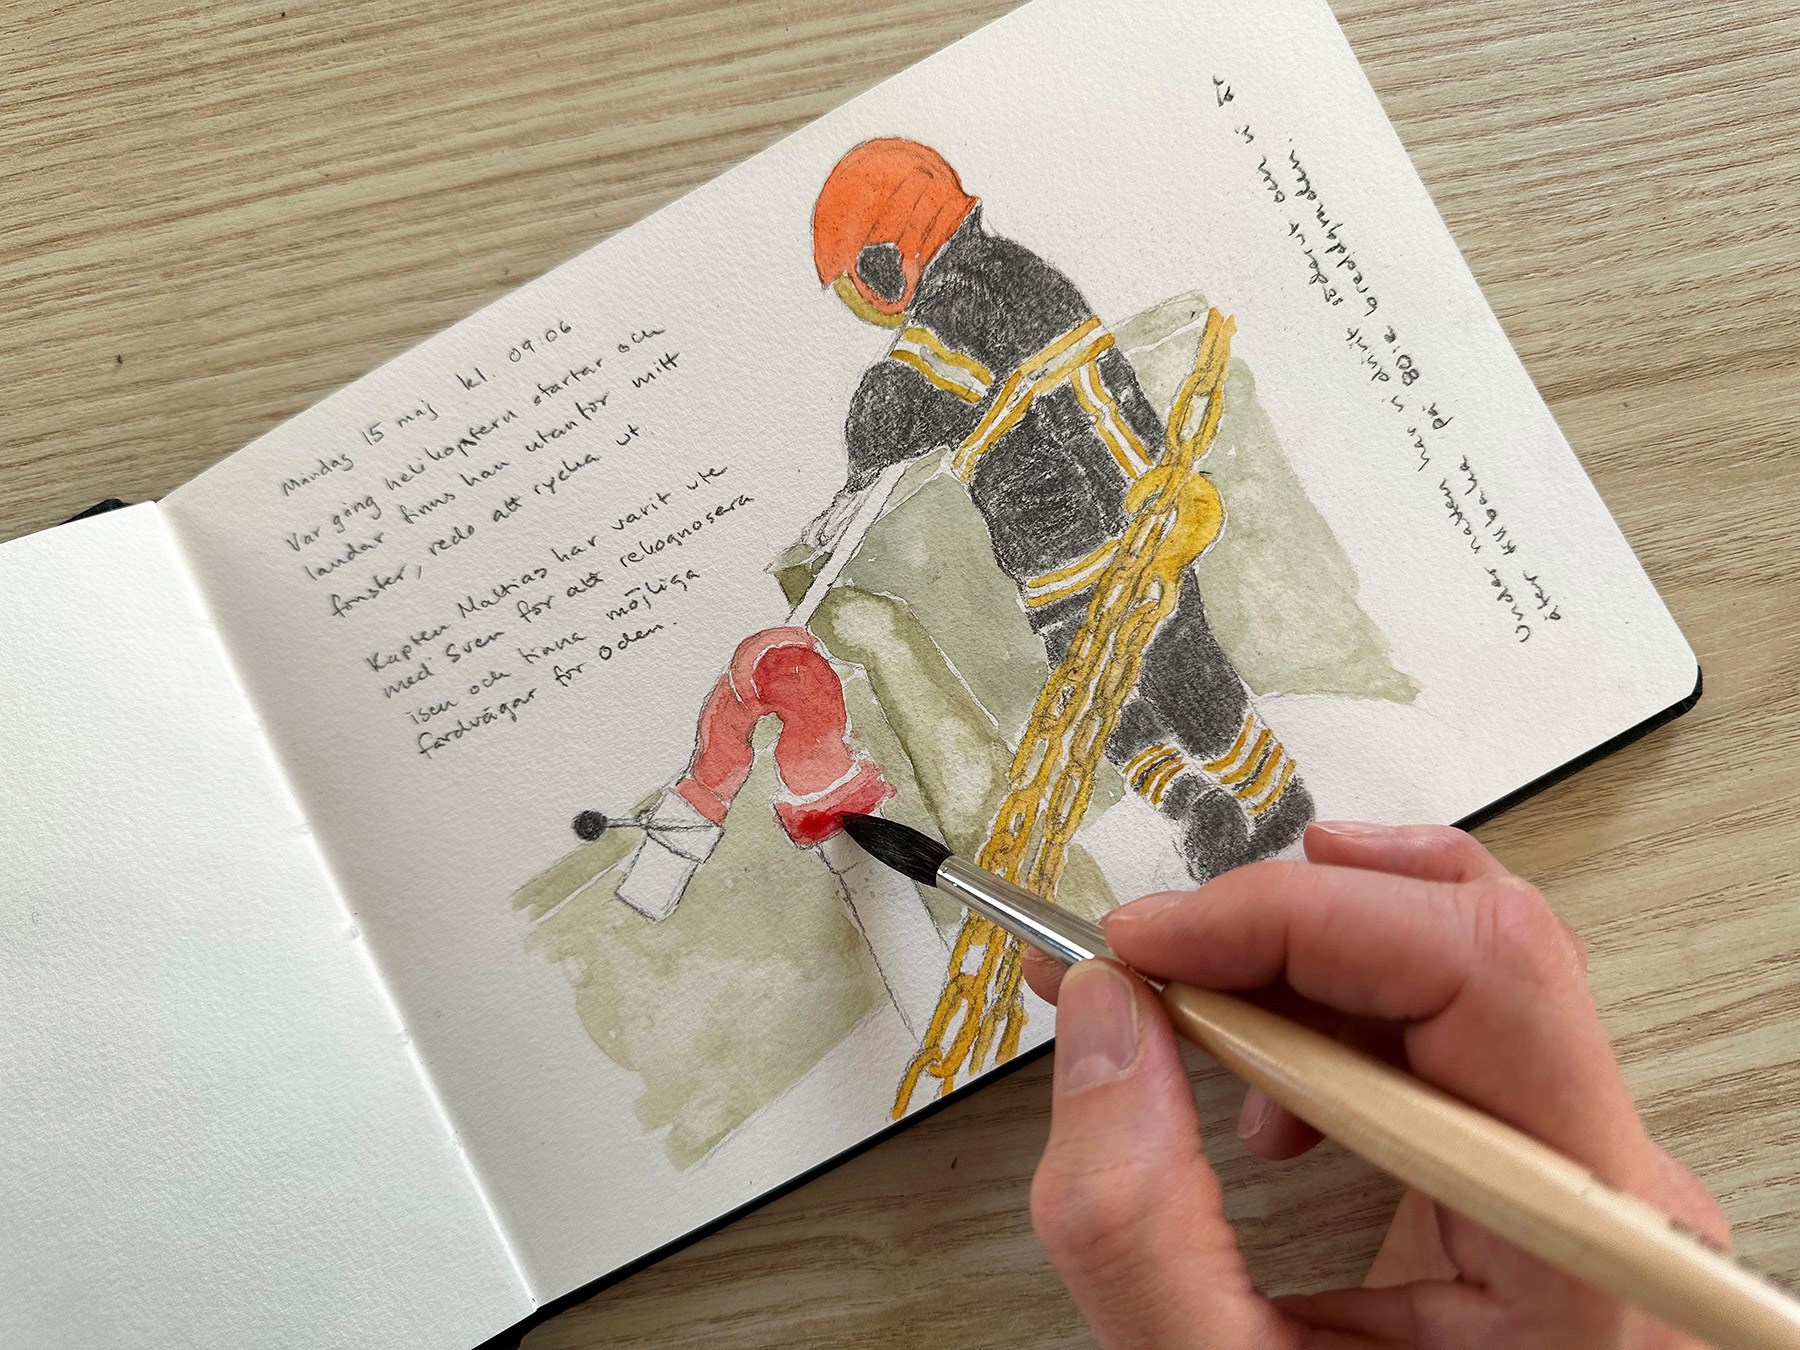 Måndag 15 maj kl. 09:06
Var gång helikoptern startar och
landar finns han utanför mitt
fönster, redo att rycka ut.
Kapten Mattias har varit ute
med Sven för att rekognosera
isen och finna möjliga
färdvägar för Oden.
Under natten har vi drivit söderut vi är
åter tillbaka på 80:e breddgraden.